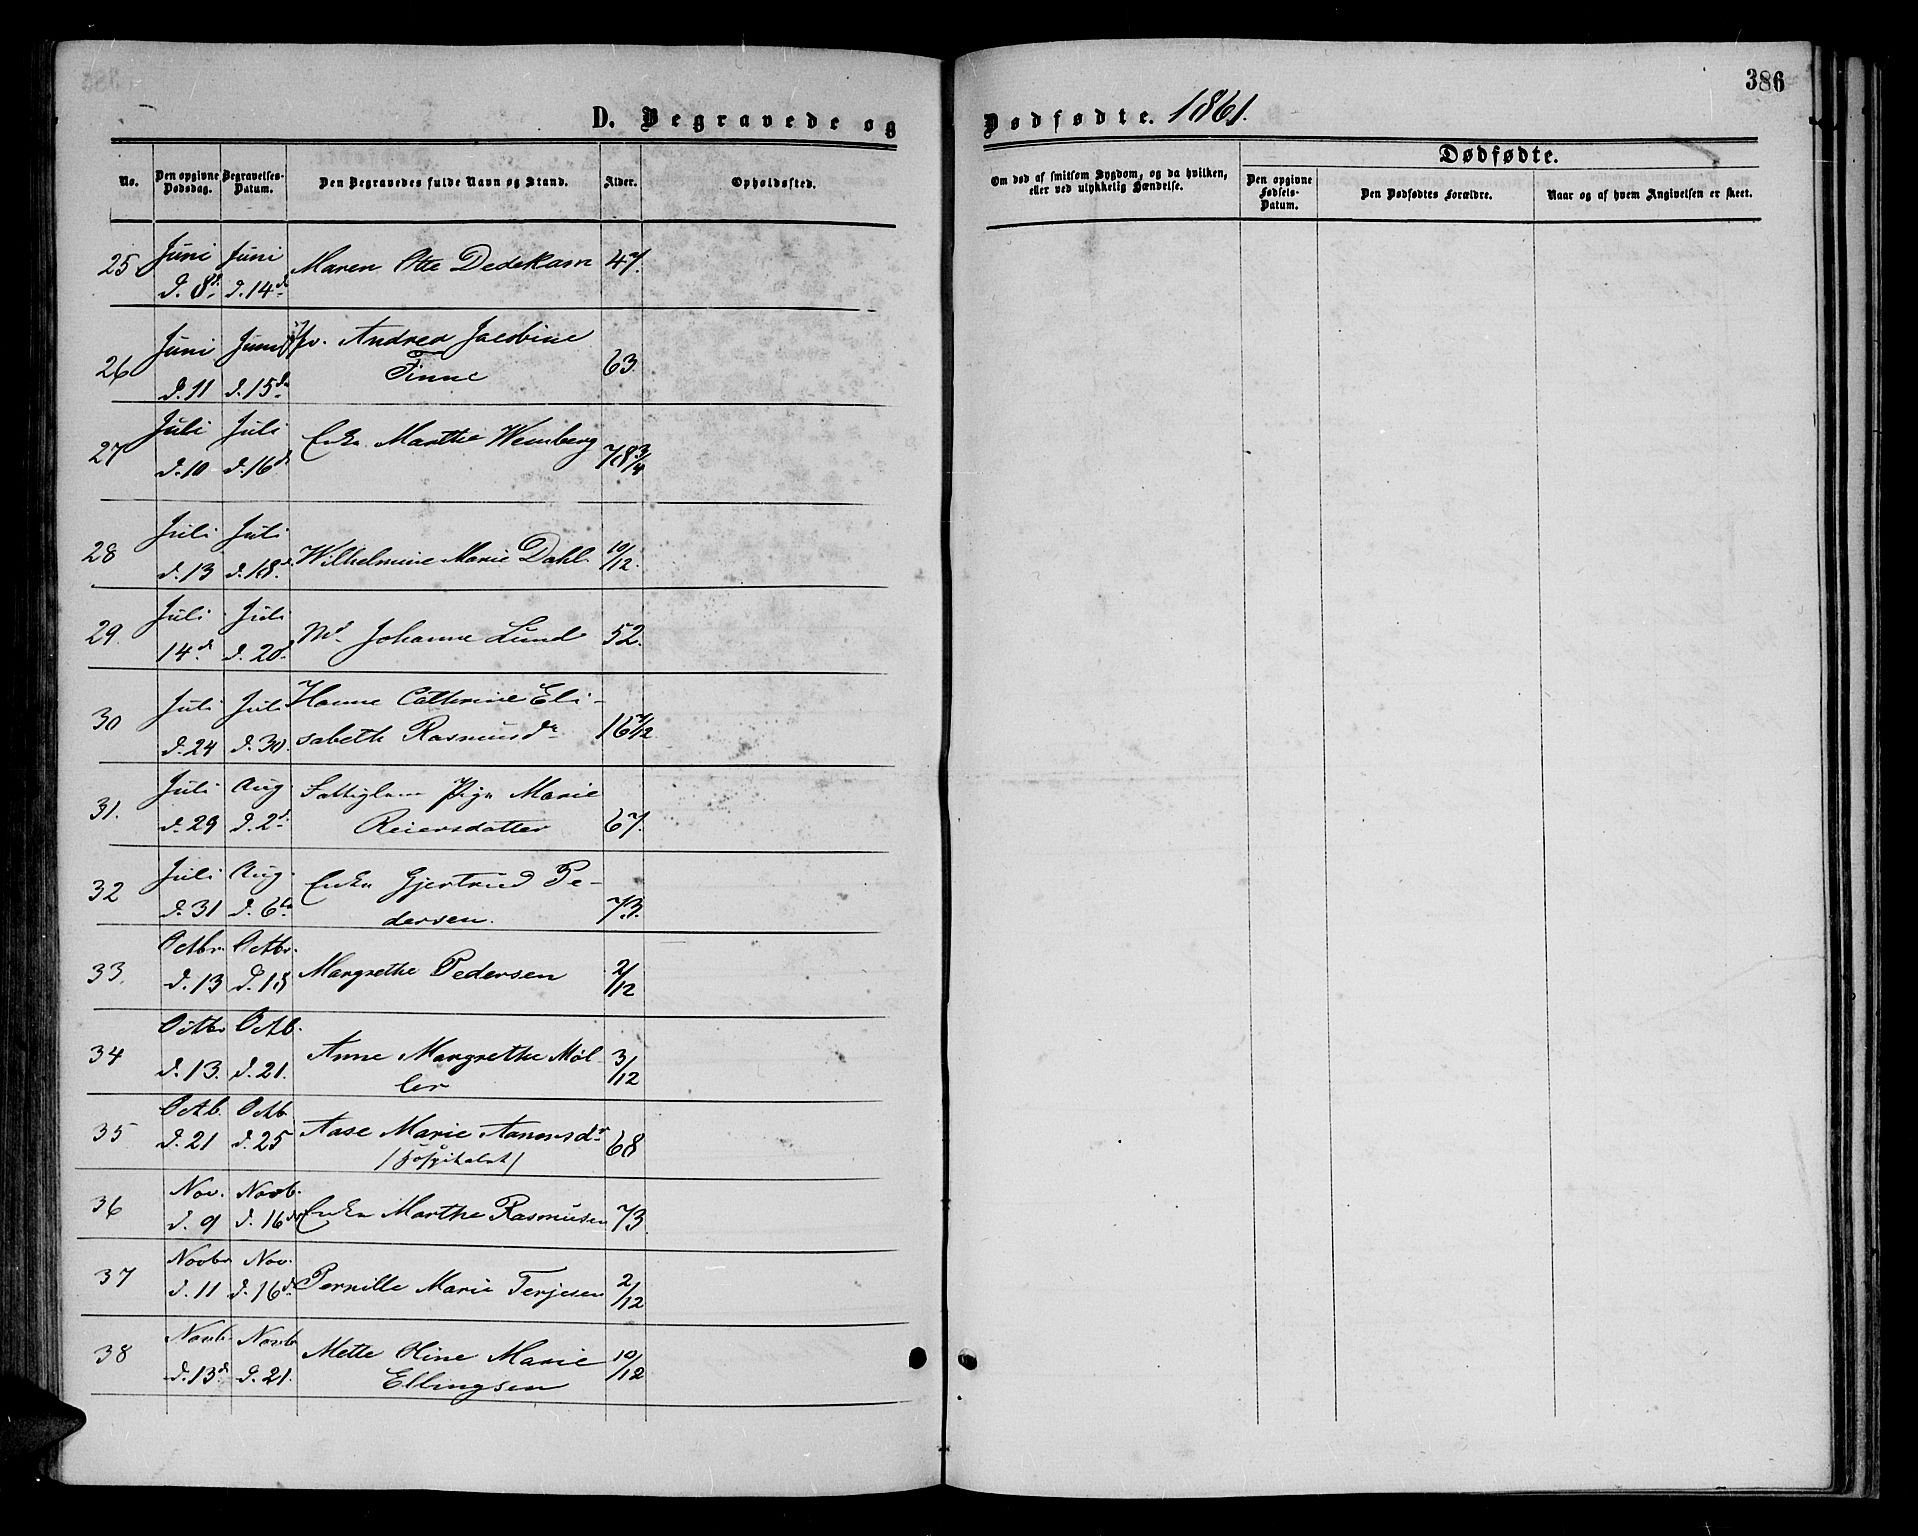 386
D. Begravede og Dødfødte. 1861.
No. Den opgivne Dødsdag. Begravelses-Datum. Den Begravedes fulde Navn og Stand. Alder. Opholdssted. Om død af smitsom Sygdom, og da hvilken, eller ved ulykkelig Hændelse. Dødfødte. Den opgivne Fødsels-Datum. Den Dødfødtes Forældre. Naar og af hvem Angivelsen er skeet.
25 Juni Juni Maren Otte Dedekam 47.
d. 8d. d. 14d
26 Juni Juni Andrea Jacobine 63.
d. 11 d. 15de Finne
27 Juli Juli Enke Marthe Wemberg 78 3/4
d. 10 d. 16d
28 Juli Juli Wilhelmine Marie Dahl. 10/12.
d. 13 d. 18d.
29. Juli Juli Md Johanne Lund 52.
14d d. 20d
30 Juli Juli Hanne Cathrine Eli-
d. 24 d. 30. sabeth Rasmusdr 16 7/12
31. Juli Aug Fattiglem Pige Marie
d. 29 d. 2d. Reiersdatter 67.
32 Juli Aug. Enke Gjertrud Pe-
d. 31 d. 6te dersen. 73.
33. Octbr. Octbr. Margrethe Pedersen 2/12
d. 13 d. 18
34 Octbr Octb. Anne Margrethe Møl- 3/12
d. 13. d. 21. ler
35 Octb. Octb. Aase Marie Aanonsdr 68
d. 21 d. 25 /Hospitalet/
36 Nov. Novb. Enke Marthe Rasmusen 73.
d. 9 d. 16de
37 Novbr Nov. Pernille Marie Terjesen 2/12
d. 11 d. 16de
38 Novb. Novbr Mette Oline Marie 10/12
d. 13d d. 21. Ellingsen